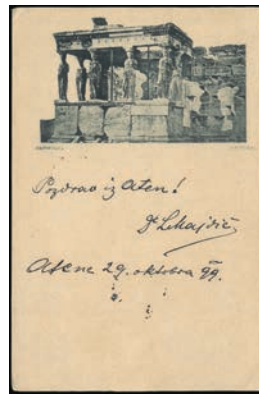 Pozdrav iz Aten!
Atene 29. oktobra 99.